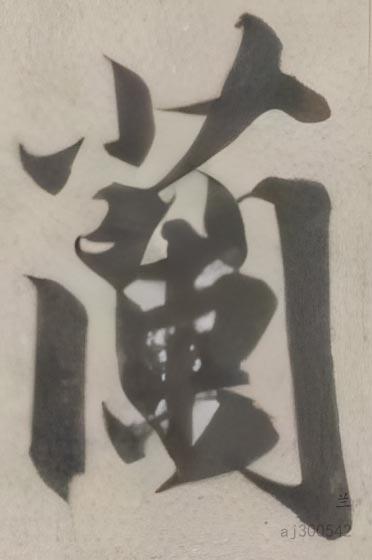 蘭
兰
aj300542